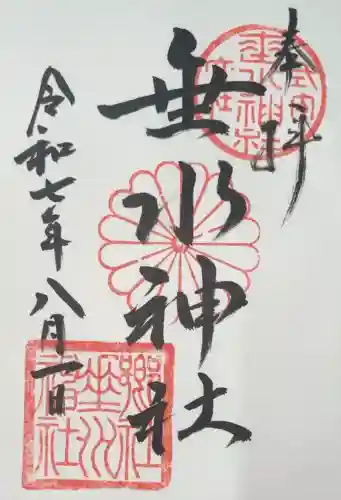 奉拝
垂水神社
令和七年八月一日
郷社
垂水
神社